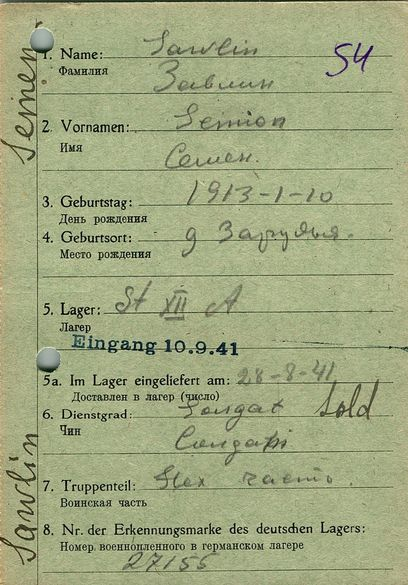 1. Name: Sawlin
54
Фамилия Завлин
2. Vornamen: Semion
Имя Семен.
3. Geburtstag: 1913-1-10
День рождения
4. Geburtsort: д Зарудья.
Место рождения
5. Lager: St XII A
Лагер
Eingang 10.9.41
5a. Im Lager eingeliefert am: 28-8-41
Доставлен в лагер (число)
6. Dienstgrad: Soldat Sold
Чин
7. Truppenteil: часть.
Воинская часть
8. Nr. der Erkennungsmarke des deutschen Lagers:
Номер военнопленного в германском лагере
27155
Semen
Sawlin